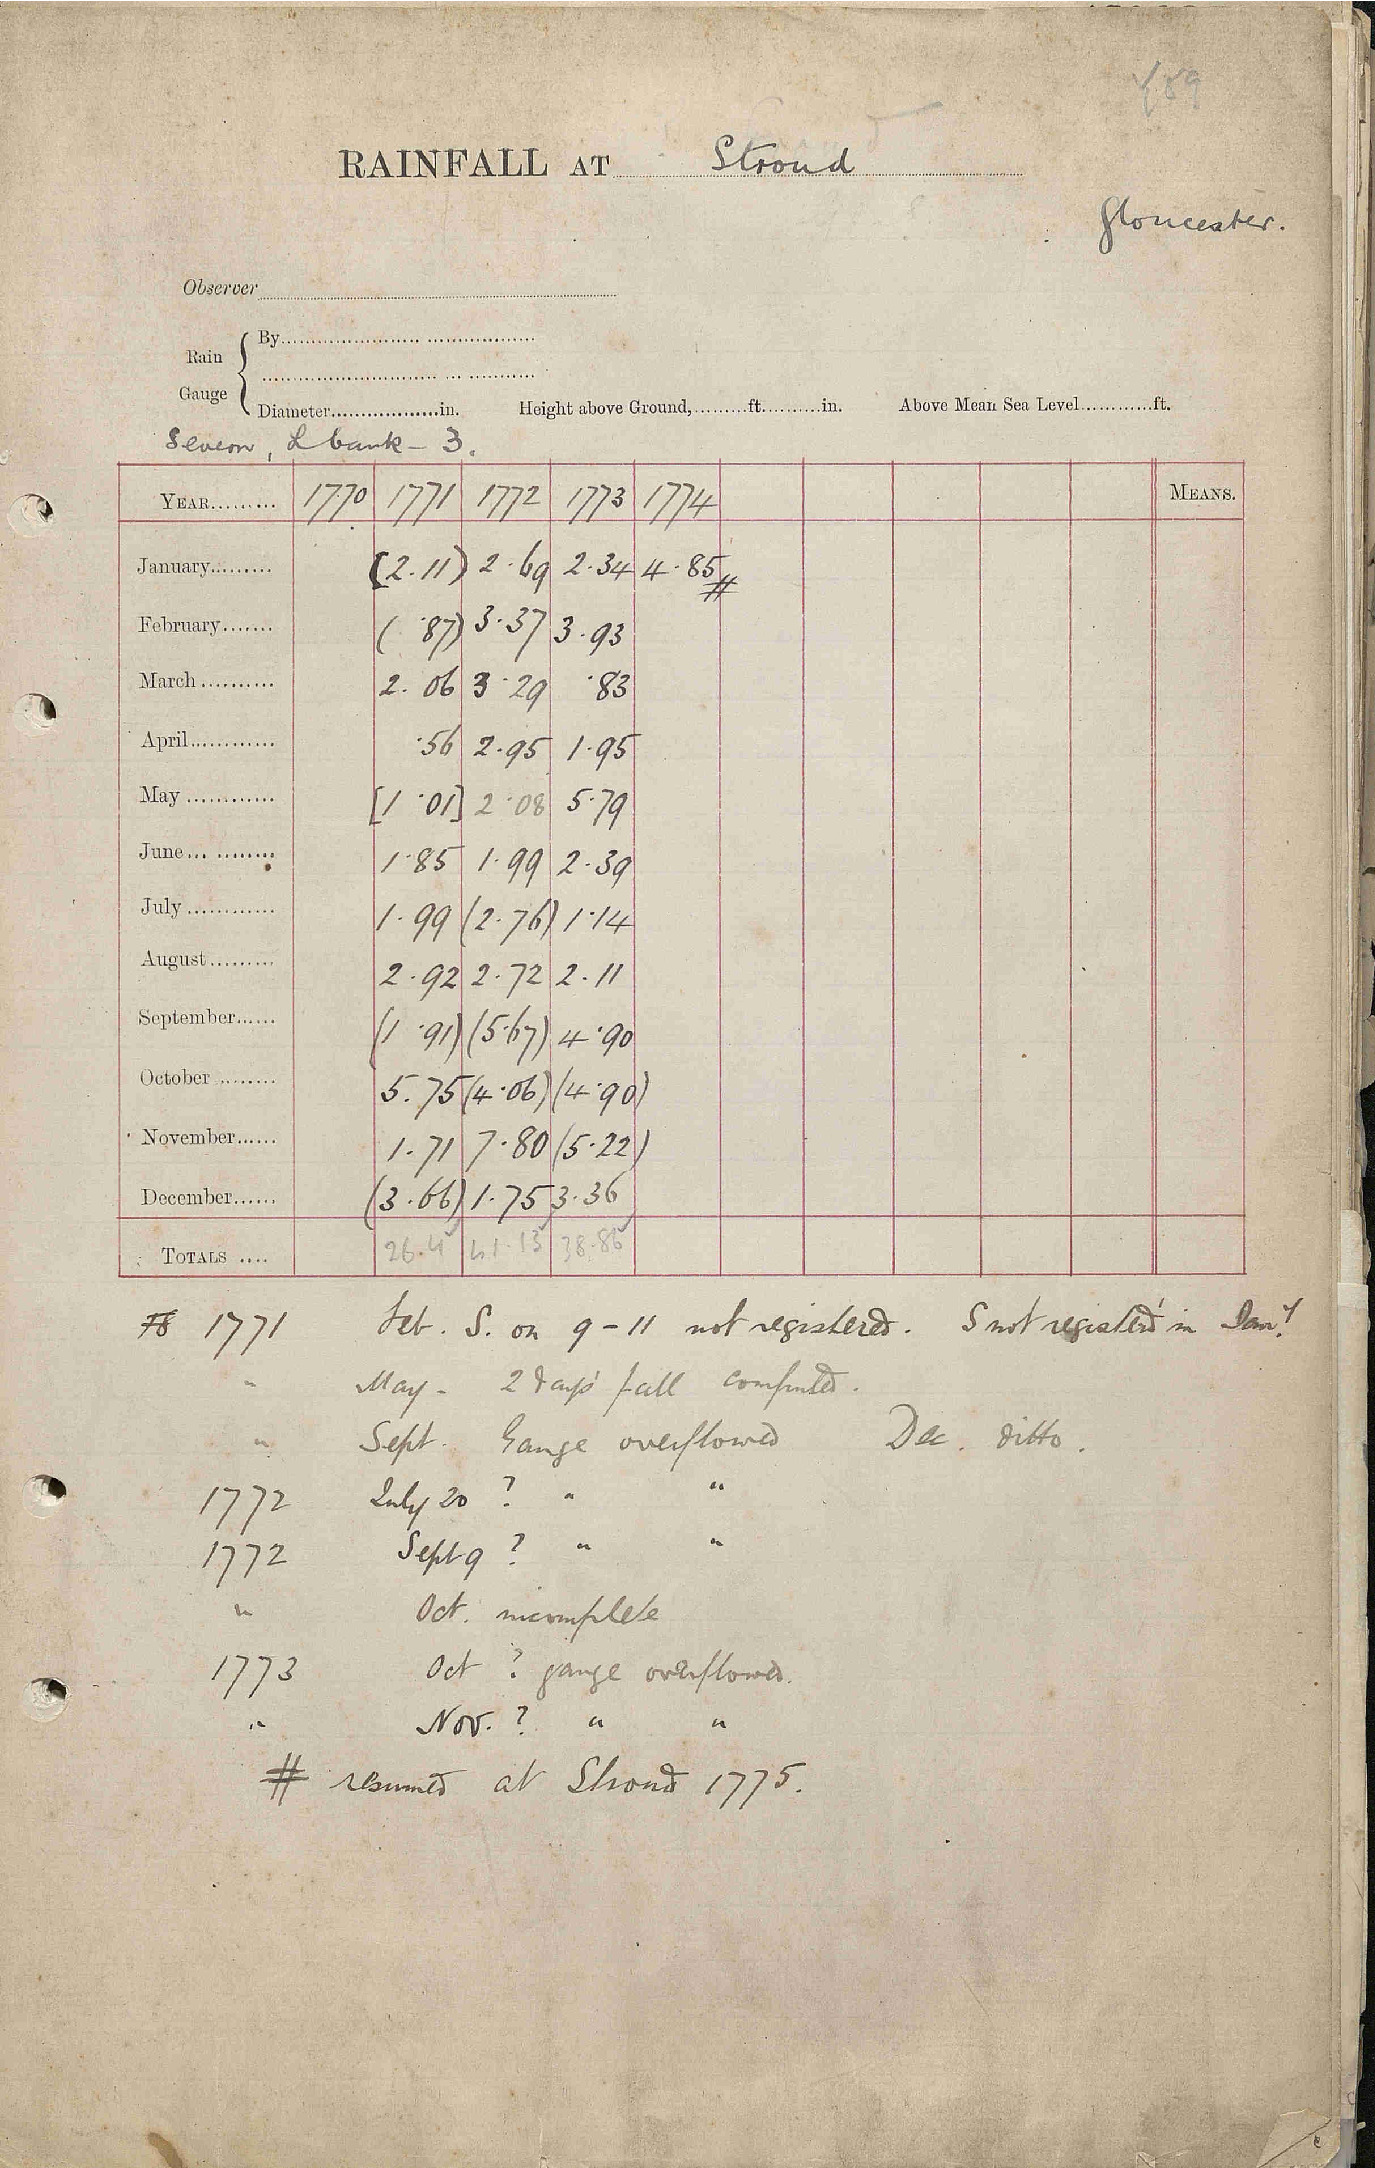 RAINFALL AT Stroud
Gloucester.
Observer
Rain Gauge { By
Diameter in. Height above Ground, ft. in. Above Mean Sea Level ft.
Severn, L bank - 3.
YEAR 1770 1771 1772 1773 1774 MEANS.
January (2.11) 2.69 2.34 4.85 #
February ( .87) 3.37 3.93
March 2.06 3.29 .83
April .56 2.95 1.95
May [1.01] 2.08 5.79
June 1.85 1.99 2.39
July 1.99 (2.76) 1.14
August 2.92 2.72 2.11
September (1.91) (5.67) 4.90
October 5.75 (4.06) (4.90)
November 1.71 7.80 (5.22)
December (3.66) 1.75 3.36
TOTALS 26.4 41.13 38.86
1771 Feb. S. on 9-11 not registered. S not registerd in Jany.
" May - 2 days' fall computed.
" Sept. Gauge overflowed Dec. ditto.
1772 July 20 ? " "
1772 Sept 9 ? " "
" Oct. incomplete
1773 Oct ? gauge overflowed.
" Nov. ? " "
# resumed at Stroud 1775.